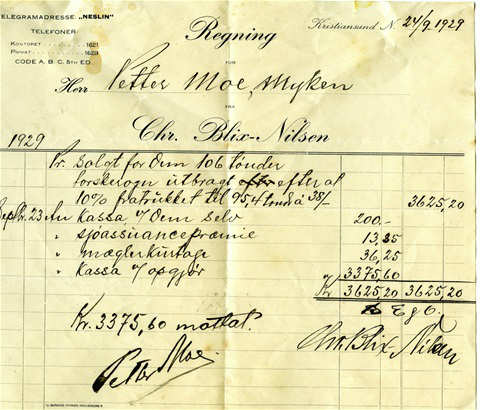 TELEGRAMADRESSE: „NESLIN"
TELEFONER:
KONTORET ........ 1621
PRIVAT ........ 1623
CODE A. B. C. 5TH ED.
Kristiansund N. 24/9 1929
Regning
FOR
Herr Petter Moe, Myken
FRA
Chr. Blix-Nilsen
1929
Pr. Solgt for Dem 106 tønder
forskrogn utbragt efter at
10% fratrukket til 95,4 tønd à 38/- 3625,20
Septbr. 23 An Kassa v/ Dem selv 200.-
" sjøassuransepræmie 13,35
" mæglerkurtage 36,25
" Kassa v/ opgjør 3375,60
Kr. 3625,20 3625,20
E & O.
Kr. 3375,60 mottat.
Chr. Blix-Nilsen
Petter Moe.